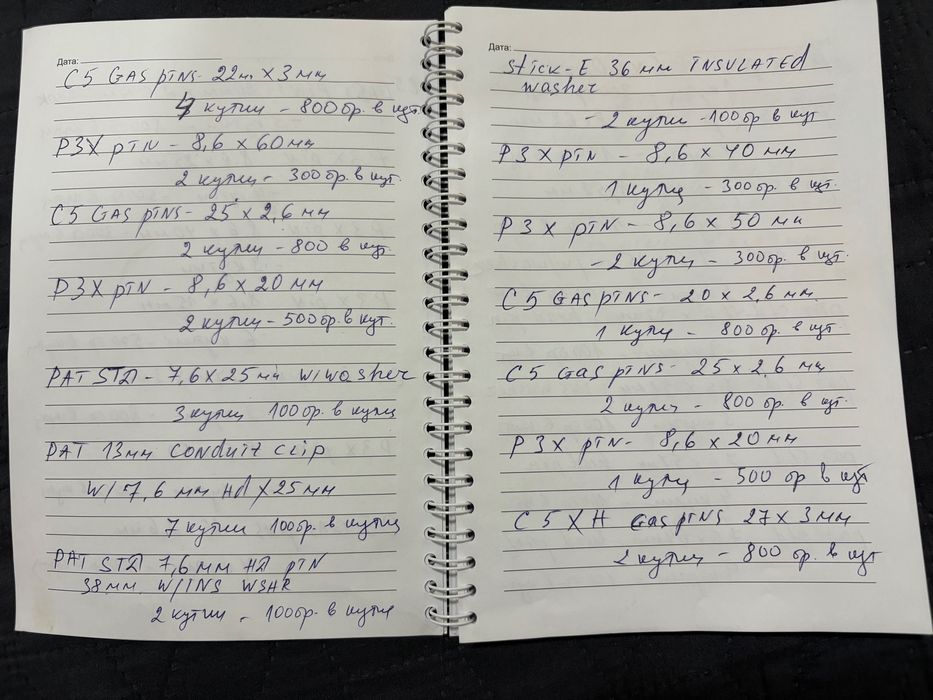 Дата:
C5 GAS pINS - 22мм x 3 мм
4 кутии - 800бр. в кут.
P3X pIN - 8,6 x 60мм
2 кутии - 300бр. в кут.
C5 GAS pINS - 25 x 2,6 мм
2 кутии - 800 в кут.
P3X pIN - 8,6 x 20 мм
2 кутии - 500бр. в кут.
PAT STD - 7,6 x 25 мм W/washer
3 кутии 100бр. в кутия
PAT 13мм CONDUIT CLIP
W/7,6 мм Hd x 25 мм
7 кутии 100бр. в кутия
PAT STD 7,6 мм HD pIN
38мм. W/INS WSHR
2 кутии - 100бр. в кутия
Дата:
Stick-E 36 мм INSULATEd
washer
- 2 кутии - 100бр. в кут
P3X pIN - 8,6 x 40 мм
1 кутия - 300бр. в кут.
P3X pIN - 8,6 x 50 мм
- 2 кутии - 300бр. в кут.
C5 GAS pINS - 20 x 2,6 мм.
1 кутия - 800бр. в кут.
C5 Gas pINS - 25 x 2,6 мм
2 кутии - 800 бр. в кут.
P3X pIN - 8,6 x 20 мм
1 кутия - 500 бр в кут
C5 XH Gas pINS 27 x 3 мм
2 кутии - 800 бр. в кут